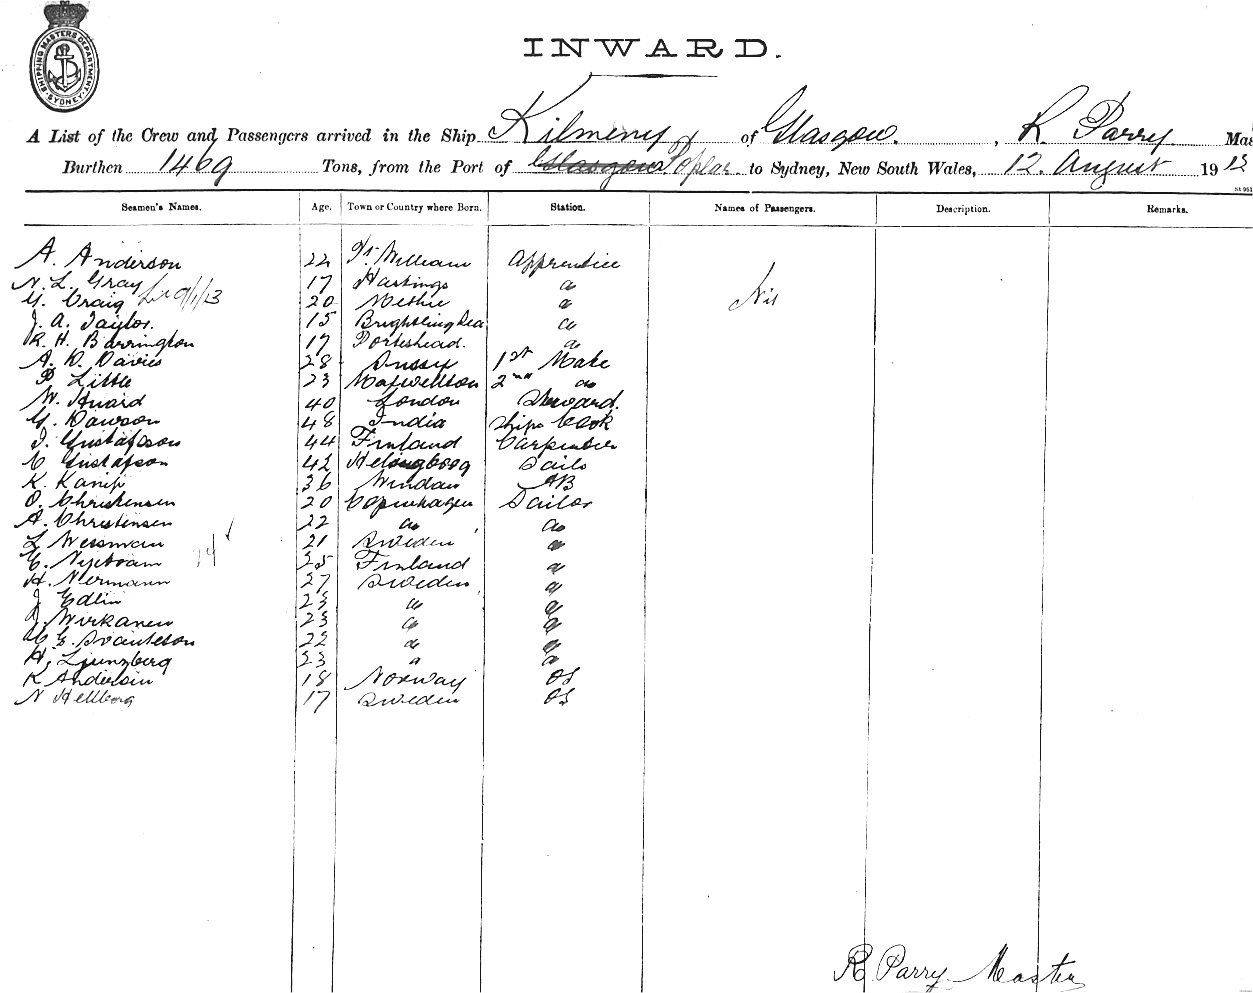 SHIPPING MASTERS DEPARTMENT. SYDNEY.
INWARD.
A List of the Crew and Passengers arrived in the Ship Kilmeny of Glasgow. , R. Parry Mas
Burthen 1469 Tons, from the Port of Glasgow Poplar to Sydney, New South Wales, 12. August 1912
Seamen's Names. Age. Town or Country where Born. Station. Names of Passengers. Description. Remarks.
A. Anderson 22 Ft William Apprentice
N. L. Gray 17 Hastings do Nil
G. Craig 9/1/13 20 Methil do
J. A. Taylor. 15 Brightlingsea do
R. H. Barrington 17 Portishead. do
A. D. Davies 28 Sussex 1st Mate
P Little 23 Maxwelltown 2nd do
W. Huard 40 London Steward.
G. Dawson 48 India Ships Cook
J. Gustafsson 44 Finland Carpenter
C Gustafson 42 Helsingborg Sails
K. Kanip 36 Windau AB
O. Christensen 20 Copenhagen Sailor
A. Christensen 22 do do
L Wessman 21 Sweden do
E. 25 Finland do
H. Nermann 27 Sweden do
J Edlin 23 do do
J. Wirkanen 23 do do
C G. Svanteson 22 do do
H. Ljungberg 23 do do
K Andersin 18 Norway OS
N Hellborg 17 Sweden OS
R Parry Master